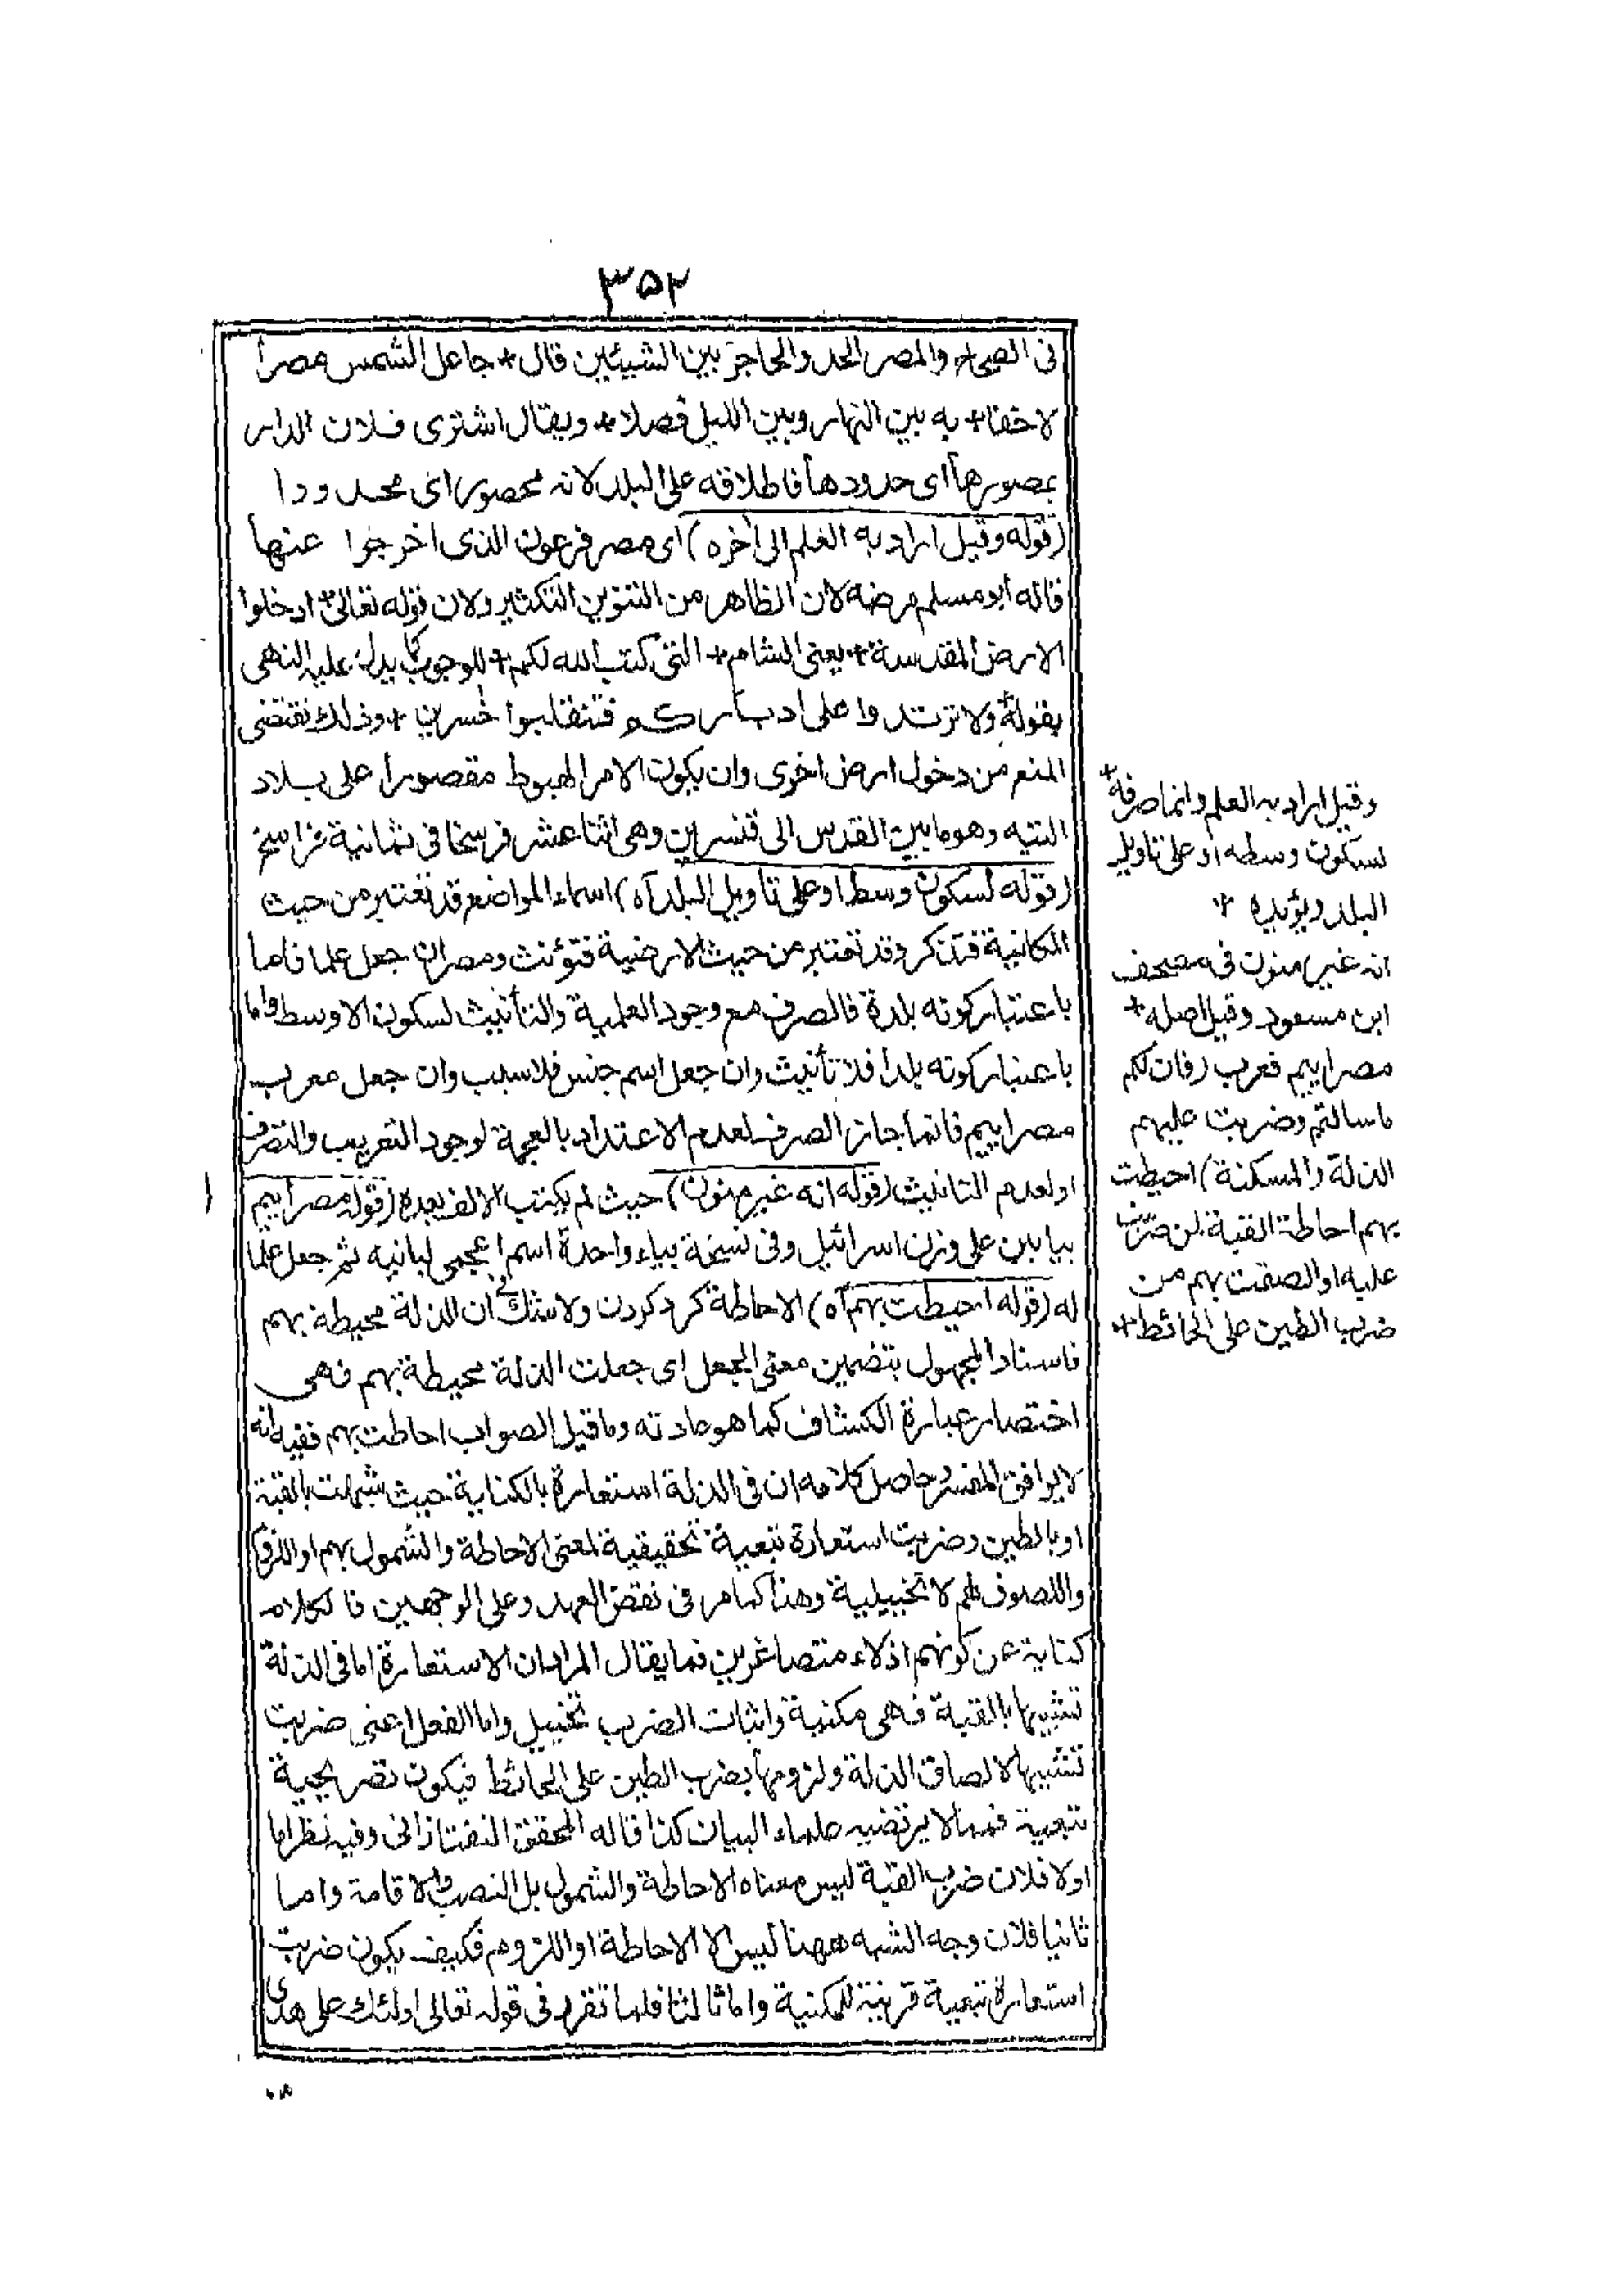 ٣٥٢
فى الصحاح والمصر الحد والحاجز بين الشيئين قال * جاعل الشمس مصرا
لا خفا * به بين النهار وبين الليل فصلا * ويقال اشترى فلان الدار
بمصورها اى حدودها فاطلاقه على البلد لانه محصور اى محدودا
(قوله وقيل اراد به العلم الى أخره) اى مصر فرعون الذى اخرجوا عنها
قاله ابو مسلم مرضه لان الظاهر من التنوين التكثير ولان قوله تعالى * ادخلوا
الارض المقدسة * يعنى الشام * التى كتب الله لكم * للوجوب كما يدل عليه النهى
بقوله ولا ترتدوا على ادباركم فتنقلبوا خٰسرين * وذلك يقتضى
المنع من دخول ارض اخرى وان يكون الامر الهبوط مقصورا على بلاد
التيه وهو ما بين القدس الى قنسرين وهى اثنا عشر فرسخا فى ثمانية فراسخ
(قوله لسكون وسط او على تاويل البلد آه) اسماء المواضع قد تعتبر من حيث
المكانية فتذكر وقد تعتبر من حيث الارضية فتؤنث ومصر ان جعل علما فاما
باعتبار كونه بلدة فالصرف مع وجود العلمية والتأنيث لسكون الاوسط واما
باعتبار كونه بلدا فلا تأنيث وان جعل اسم جنس فلا سبب وان جعل معرب
مصراييم فانما جاز الصرف لعدم الاعتداد بالعجمة لوجود التعريب والتصرف
او لعدم التانيث (قوله انه غير منون) حيث لم يكتب الالف بعده (قوله مصراييم
بيايين على وزن اسرائيل وفى نسخة بياء واحدة اسم اعجمى لبانيه ثم جعل علما
له (قوله احيطت بهم آه) الاحاطة كرد كردن ولا شك ان الذلة محيطة بهم
فاسناد المجهول بتضمين معنى الجعل اى جعلت الذلة محيطة بهم فهى
اختصار عبارة الكشاف كما هو عادته وما قيل الصواب احاطت بهم ففيه انه
لا يوافق المفسر وحاصل كلامه ان فى الذلة استعارة بالكناية حيث شبهت بالقبة
او بالطين وضربت استعارة تبعية تحقيقية لمعنى الاحاطة والشمول بهم او اللزوم
واللصوق بهم لا تخييلية وهذا كما مر فى نقض العهد وعلى الوجهين فالكلام
كناية عن كونهم اذلاء متصاغرين فما يقال المراد ان الاستعارة اما فى الذلة
تشبيها بالقبة فهى مكنية واثبات الضرب تخييل واما الفعل اعنى ضربت
تشبيها لالصاق الذلة ولزومها بضرب الطين على الحائط فيكون تصريحية
تبعية فمما لا يرتضيه علماء البيان كذا قاله المحقق التفتازانى وفيه نظر اما
اولا فلان ضرب القبة ليس معناه الاحاطة والشمول بل النصب والاقامة واما
ثانيا فلان وجه الشبه ههنا ليس الا الاحاطة او اللزوم فكيف يكون ضربت
استعارة تبعية قرينة للمكنية واما ثالثا فلما تقرر فى قوله تعالى اولئك على هدى
وقيل اراد به العلم وانما صرفه *
لسكون وسطه او على تاويل
البلد ويؤيده *
انه غير منون فى مصحف
ابن مسعود وقيل اصله *
مصراييم فعرب (فان لكم
ما سالتم وضربت عليهم
الذلة والمسكنة) احيطت
بهم احاطة القبة بمن ضربت
عليه او الصقت بهم من
ضرب الطين على الحائط *